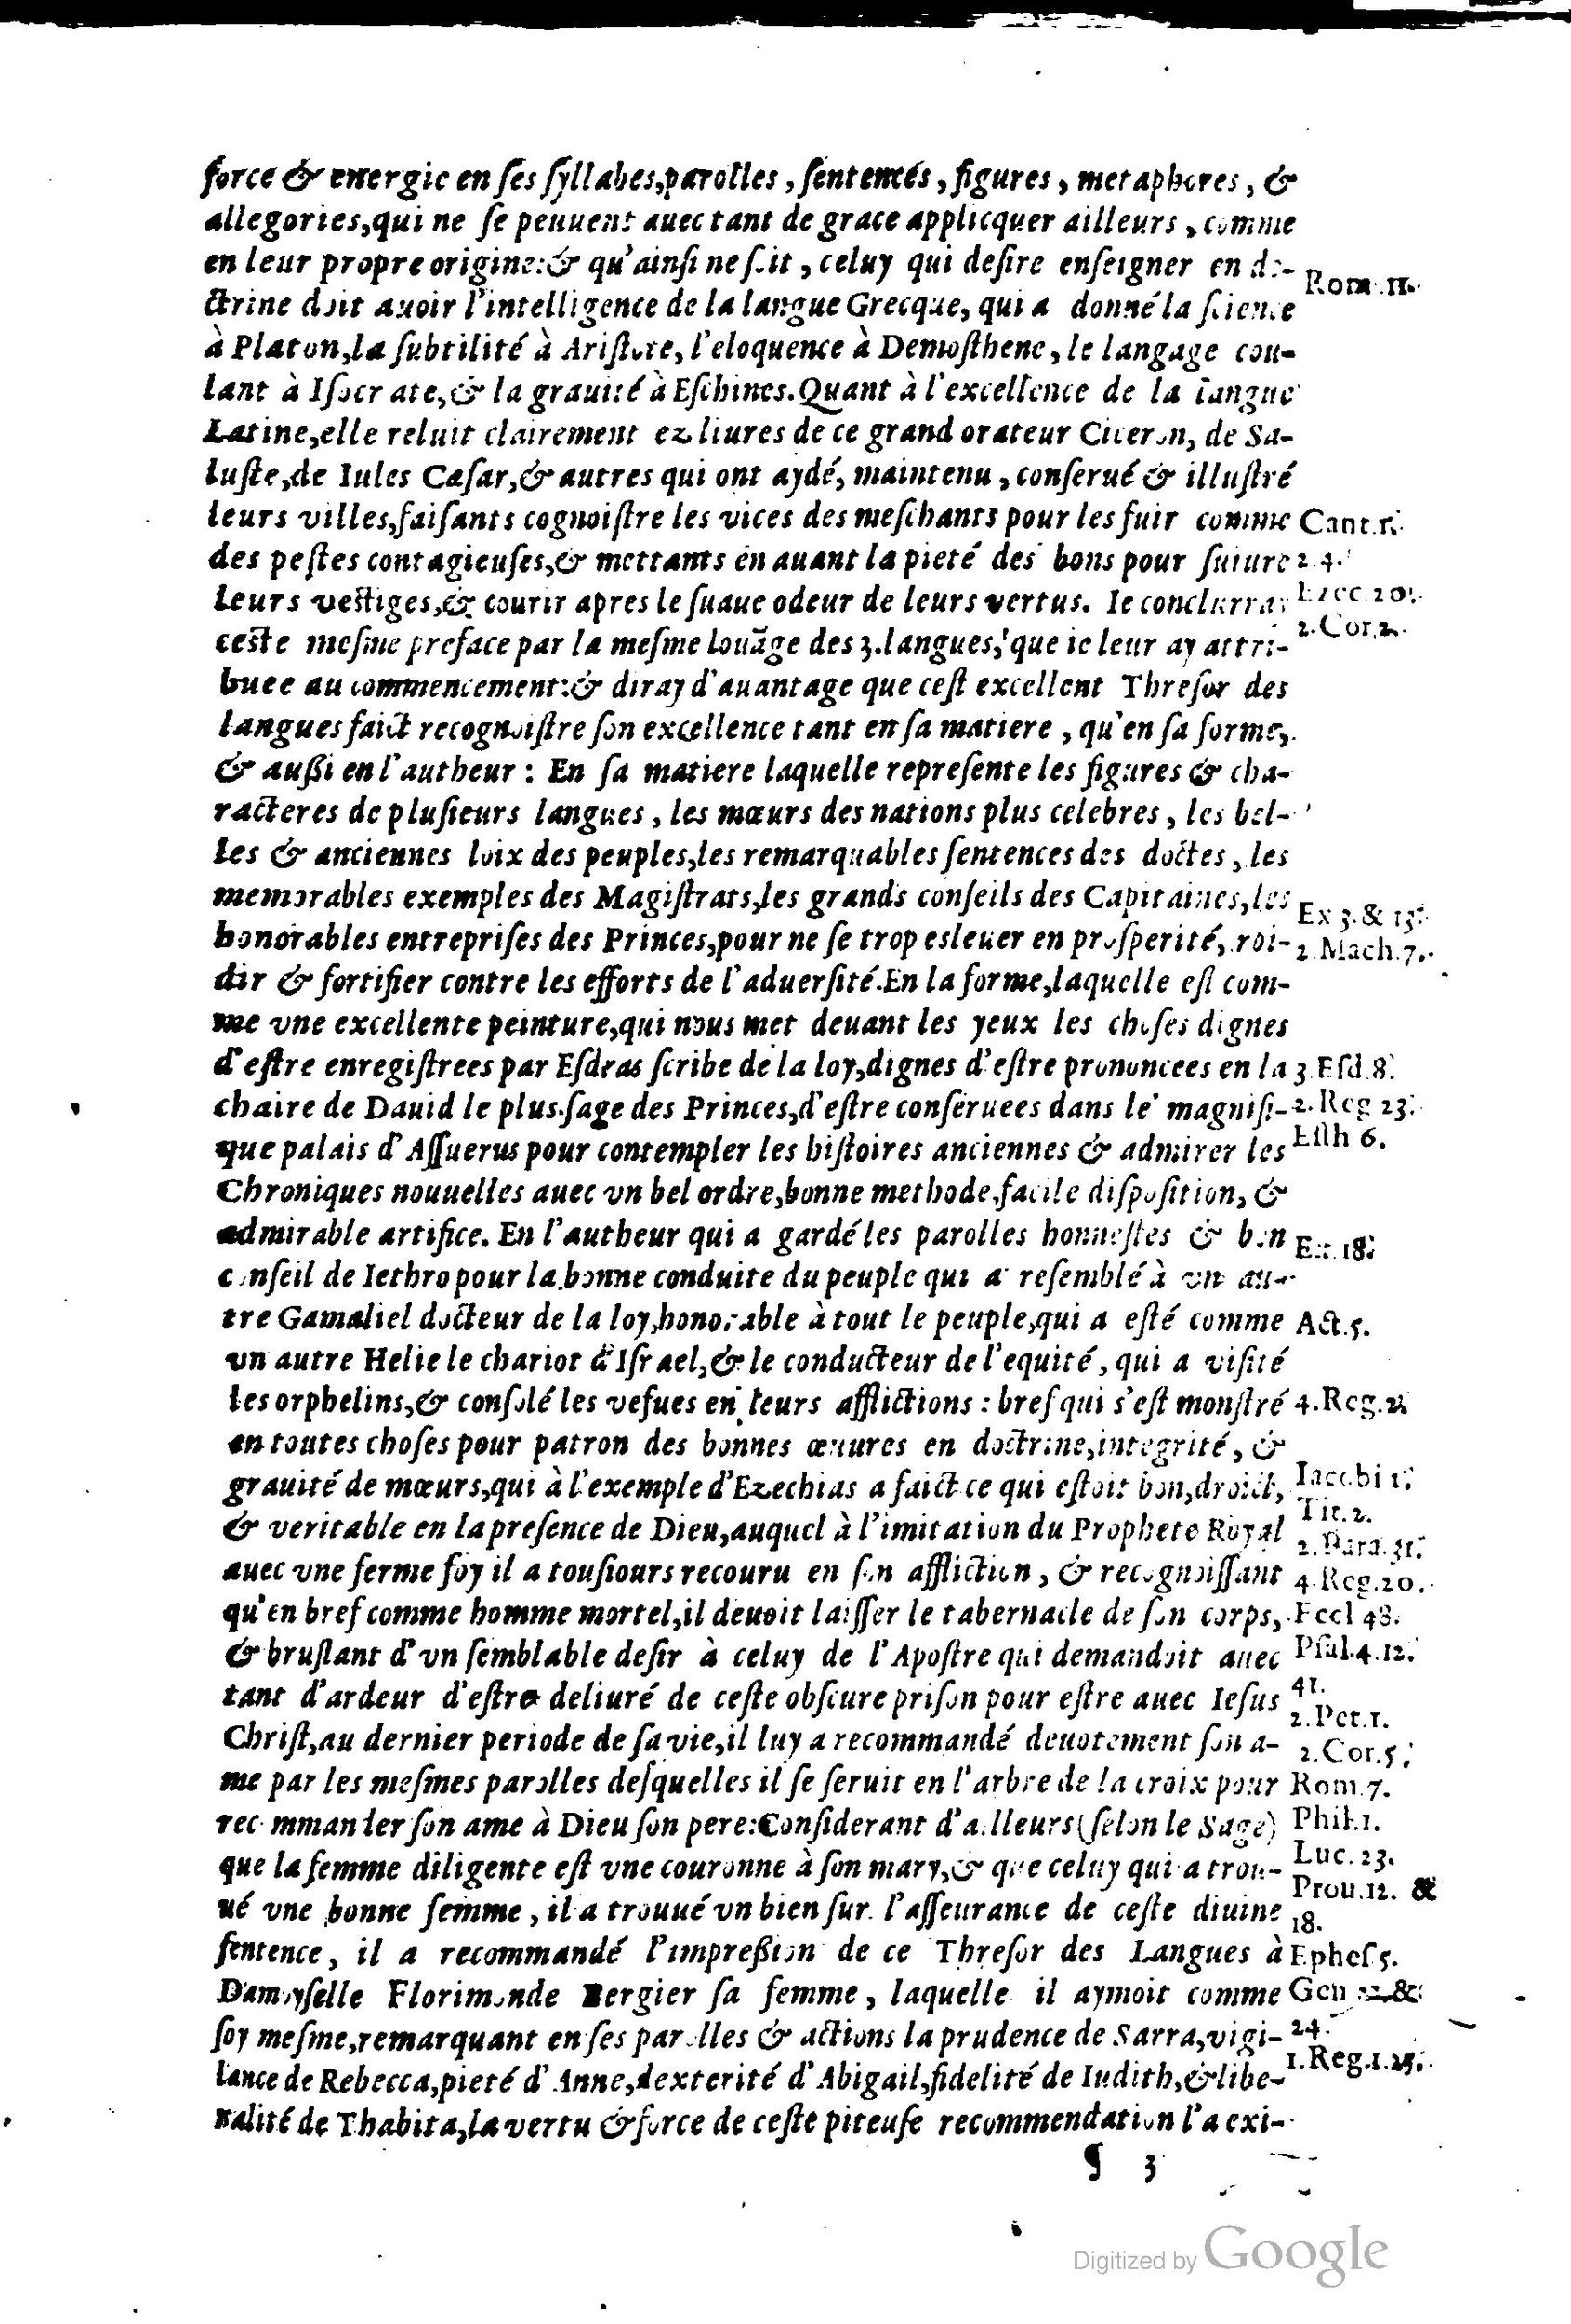 force & energie en ſes ſyllabes,parolles , ſentences , figures , metaphores , &
allegories,qui ne ſe peuuent auec tant de grace applicquer ailleurs , comme
en leur propre origine:& qu'ainſi ne ſoit , celuy qui deſire enſeigner en do-
Rom.11.
ctrine doit auoir l'intelligence de la langue Grecque, qui a donné la ſcience
à Platon,la ſubtilité à Ariſtote, l'eloquence à Demoſthene, le langage cou-
lant à Iſocrate,& la grauité à Eſchines.Quant à l'excellence de la langue
Latine,elle reluit clairement ez liures de ce grand orateur Ciceron, de Sa-
luſte,de Iules Cæſar,& autres qui ont aydé, maintenu , conſerué & illuſtré
leurs villes,faiſants cognoiſtre les vices des meſchants pour les fuir comme
Cant.1.
des peſtes contagieuſes,& mettants en auant la pieté des bons pour ſuiure
2.4.
leurs veſtiges,& courir apres le ſuaue odeur de leurs vertus. Ie conclurray
Ezec.20.
2.Cor.2.
ceſte meſme preface par la meſme louãge des 3.langues, que ie leur ay attri-
buee au commencement:& diray d'auantage que ceſt excellent Threſor des
langues faict recognoiſtre ſon excellence tant en ſa matiere , qu'en ſa forme,
& außi en l'autheur : En ſa matiere laquelle repreſente les figures & cha-
racteres de pluſieurs langues , les mœurs des nations plus celebres , les bel-
les & anciennes loix des peuples,les remarquables ſentences des doctes , les
memorables exemples des Magiſtrats,les grands conſeils des Capitaines,les
Ex 3.& 13.
honorables entrepriſes des Princes,pour ne ſe trop eſleuer en proſperité, roi-
2.Mach.7.
dir & fortifier contre les efforts de l'aduerſité.En la forme,laquelle eſt com-
me vne excellente peinture,qui nous met deuant les yeux les choſes dignes
d'eſtre enregiſtrees par Eſdras ſcribe de la loy,dignes d'eſtre prononcees en la
3.Eſd.8.
chaire de Dauid le plus ſage des Princes,d'eſtre conſeruees dans le magnifi-
2.Reg 23.
que palais d'Aſſuerus pour contempler les hiſtoires anciennes & admirer les
Eſth 6.
Chroniques nouuelles auec vn bel ordre,bonne methode,facile diſpoſition, &
admirable artifice. En l'autheur qui a gardé les parolles honneſtes & bon
Ex.18.
conſeil de Iethro pour la bonne conduite du peuple qui a reſemblé à vn au-
tre Gamaliel docteur de la loy,honorable à tout le peuple,qui a eſté comme
Act.5.
vn autre Helie le chariot d'Iſrael,& le conducteur de l'equité, qui a viſité
les orphelins,& conſolé les vefues en leurs afflictions : bref qui s'eſt monſtré
4.Reg.2.
en toutes choſes pour patron des bonnes œuures en doctrine,integrité, &
grauité de mœurs,qui à l'exemple d'Ezechias a faict ce qui eſtoit bon,droict,
Iacobi 1.
Tit.2.
& veritable en la preſence de Dieu,auquel à l'imitation du Prophete Royal
2.Para.31.
auec vne ferme foy il a touſiours recouru en ſon affliction , & recognoiſſant
4.Reg.20.
qu'en bref comme homme mortel,il deuoit laiſſer le tabernacle de ſon corps,
Eccl 48.
& bruſlant d'vn ſemblable deſir à celuy de l'Apoſtre qui demandoit auec
Pſal.4.12.
tant d'ardeur d'eſtre deliuré de ceſte obſcure priſon pour eſtre auec Ieſus
41.
2.Pet.1.
Chriſt,au dernier periode de ſa vie,il luy a recommandé deuotement ſon a-
2.Cor.5.
me par les meſmes parolles deſquelles il ſe ſeruit en l'arbre de la croix pour
Rom.7.
recommander ſon ame à Dieu ſon pere:Conſiderant d'ailleurs (ſelon le Sage)
Phil.1.
que la femme diligente eſt vne couronne à ſon mary,& que celuy qui a trou-
Luc.23.
ué vne bonne femme , il a trouué vn bien ſur l'aſſeurance de ceſte diuine
Prou.12. &
18.
ſentence, il a recommandé l'impreßion de ce Threſor des Langues à
Epheſ 5.
Damoyſelle Florimonde Bergier ſa femme, laquelle il aymoit comme
Gen &
ſoy meſme,remarquant en ſes parolles & actions la prudence de Sarra,vigi-
24.
lance de Rebecca,pieté d'Anne,dexterité d'Abigail,fidelité de Iudith,& libe-
1.Reg.1.25.
ralité de Thabita,la vertu & force de ceſte piteuſe recommendation l'a exi-
¶ 3
Digitized by Google